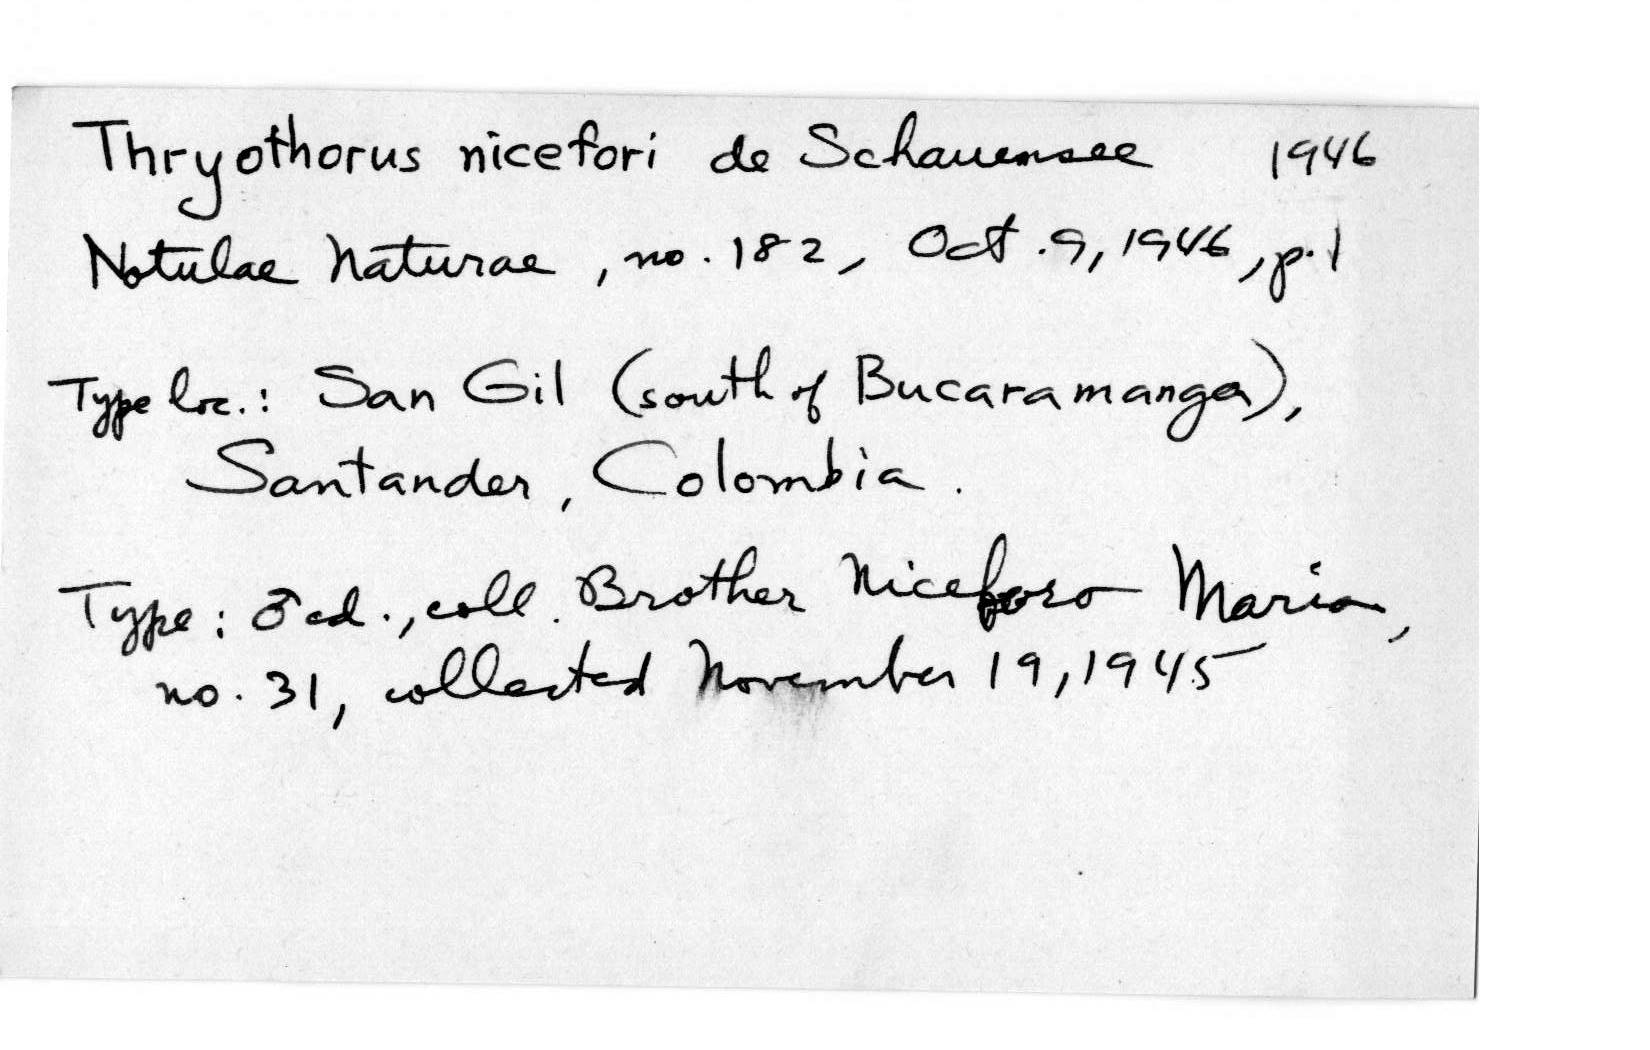 Thryothorus nicefori de Schauensee 1946
Notulae Naturae, no. 182, Oct. 9, 1946, p. 1
Type loc.: San Gil (south of Bucaramanga),
Santander, Colombia.
Type: ♂ ad., coll. Brother Niceforo Maria,
no. 31, collected November 19, 1945